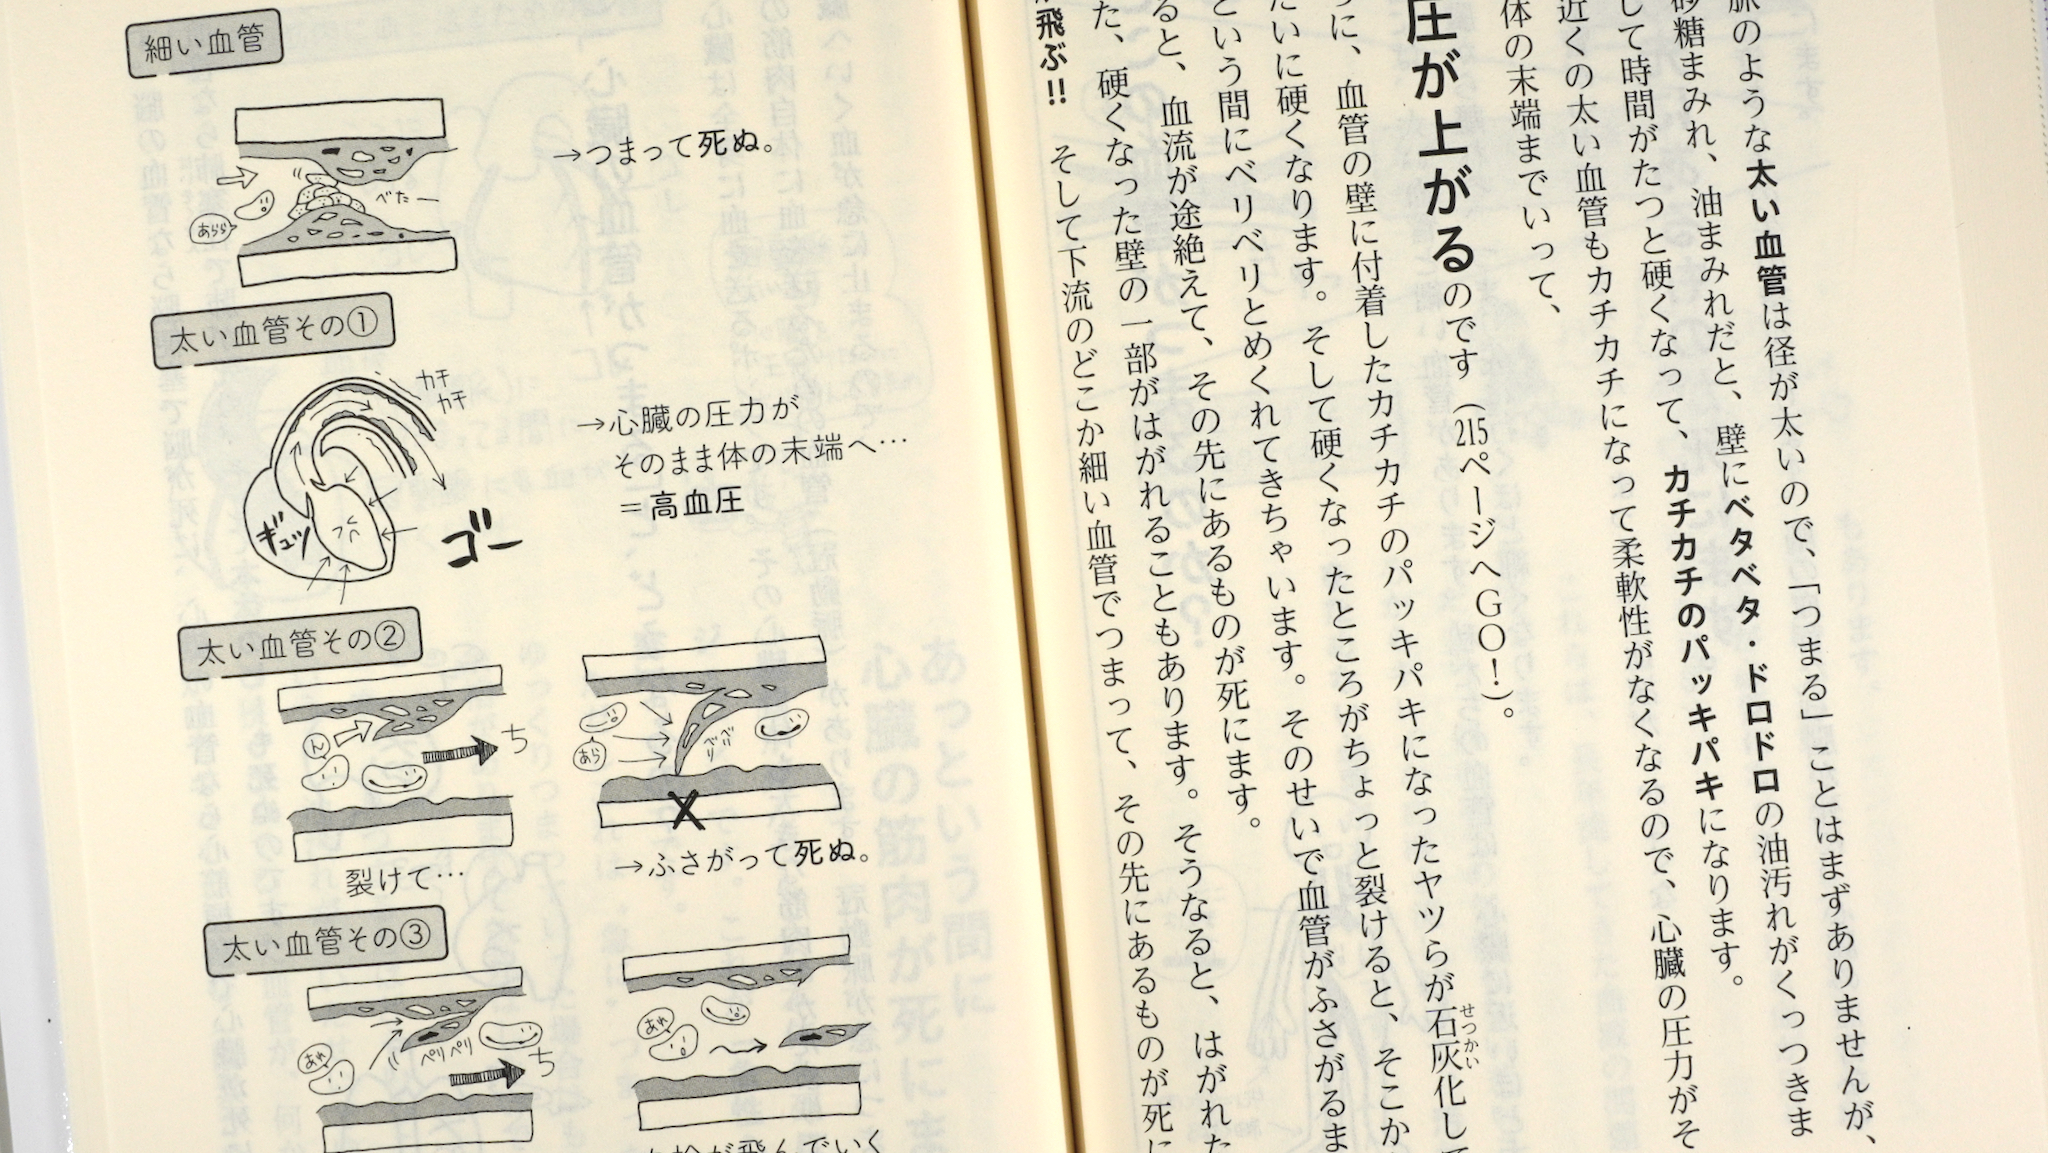 脈のような太い血管は径が太いので、「つまる」ことはまずありませんが、
砂糖まみれ、油まみれだと、壁にベタベタ・ドロドロの油汚れがくっつきま
して時間がたつと硬くなって、カチカチのパッキパキになります。
近くの太い血管もカチカチになって柔軟性がなくなるので、心臓の圧力がそ
体の末端までいって、
圧が上がるのです(215ページへGO!)。
に、血管の壁に付着したカチカチのパッキパキになったヤツらが石灰化して
せっかい
たいに硬くなります。そして硬くなったところがちょっと裂けると、そこか
という間にベリベリとめくれてきちゃいます。そのせいで血管がふさがるま
ると、血流が途絶えて、その先にあるものが死にます。
た、硬くなった壁の一部がはがれることもあります。そうなると、はがれた
飛ぶ!! そして下流のどこか細い血管でつまって、その先にあるものが死に
細い血管
べたー
あらら
→つまって死ぬ。
太い血管その①
カチ
カチ
ギュッ
ゴー
→心臓の圧力が
そのまま体の末端へ…
=高血圧
太い血管その②
ん
ち
裂けて…
あら
→ふさがって死ぬ。
太い血管その③
あれ
ペリペリ
ち
あれ
が飛んでいく